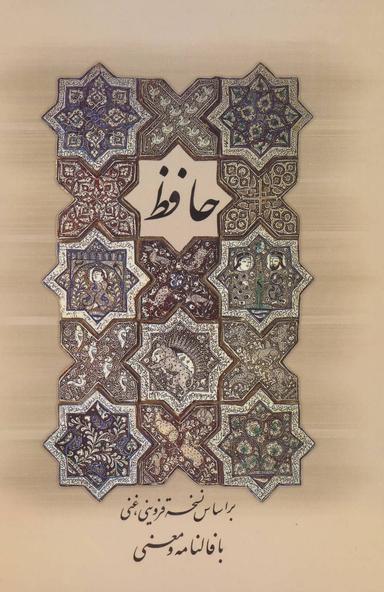 حافظ
براساس نسخه قزوینی، غنی
با فالنامه و معنی